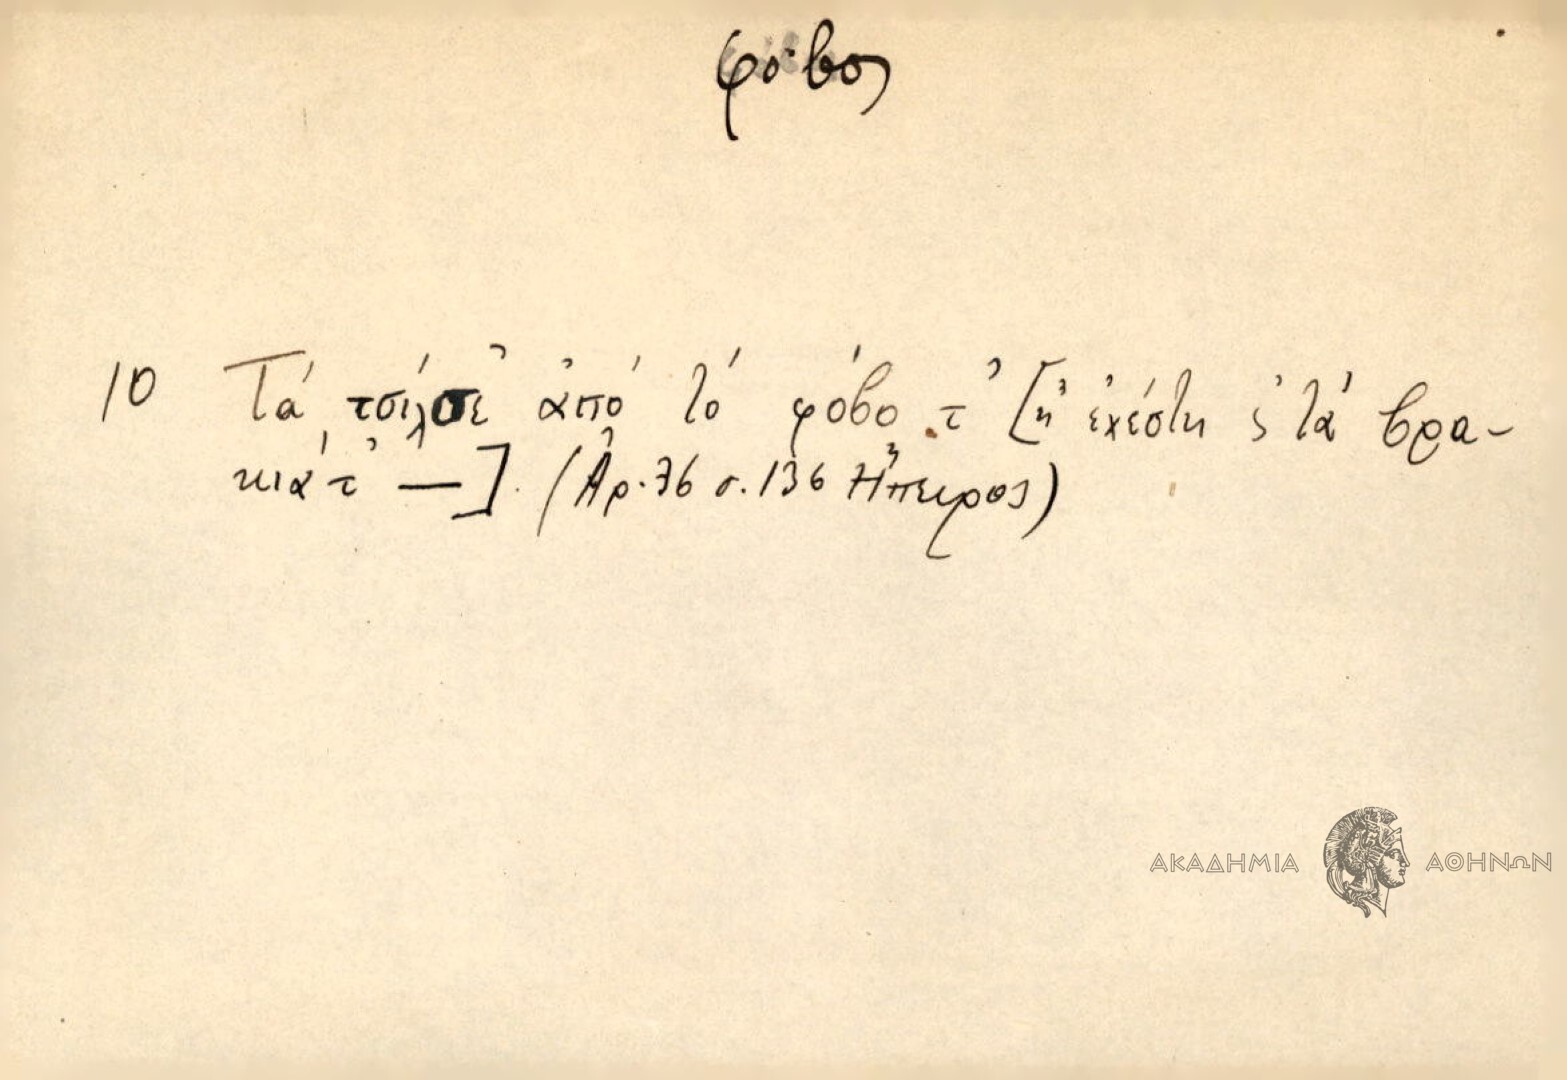 φόβος
10 Τά τσίλσε ἀπό τό φόβο τ᾽ [ἤ ἐχέστη ς τά βρα-
κιά τ᾽ —]. (Ἀρ. 76 σ. 136 Ἤπειρος)
ΑΚΑΔΗΜΙΑ ΑΘΗΝΩΝ